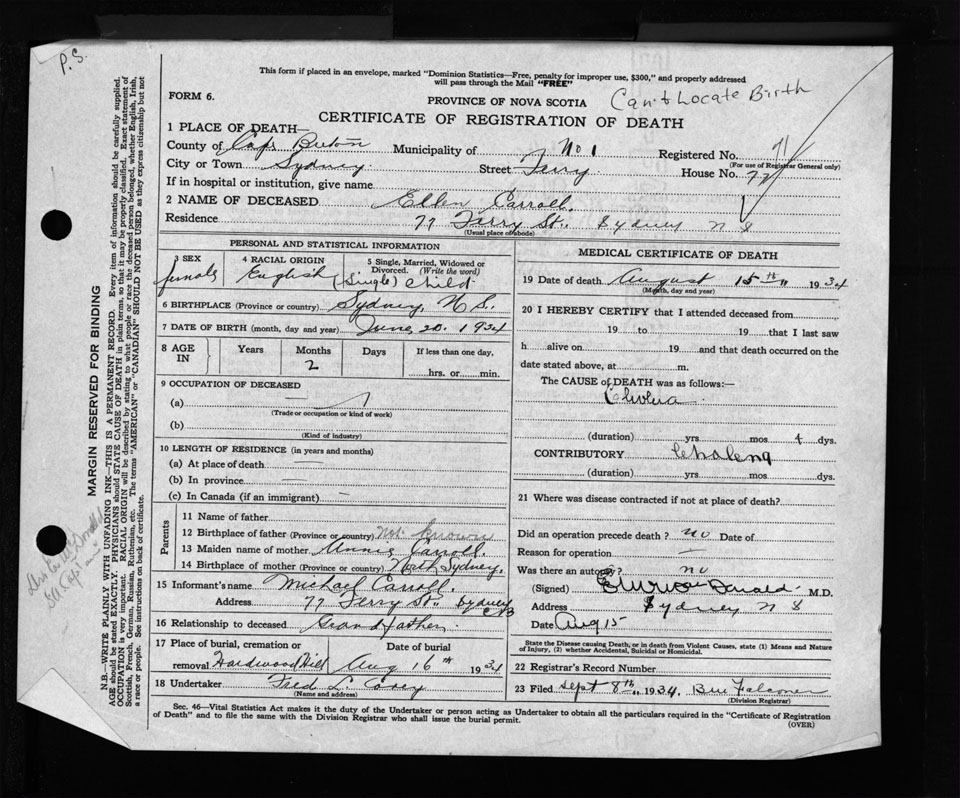 P.S.
This form if placed in an envelope, marked "Dominion Statistics—Free, penalty for improper use, $300," and properly addressed
will pass through the Mail "FREE"
FORM 6.
PROVINCE OF NOVA SCOTIA
Can't Locate Birth
CERTIFICATE OF REGISTRATION OF DEATH
1 PLACE OF DEATH—
County of Cape Breton Municipality of No 1 Registered No. 71
(For use of Registrar General only)
City or Town Sydney. Street Terry. House No. 77
If in hospital or institution, give name
2 NAME OF DECEASED Ellen Carroll.
Residence 77 Terry St., Sydney N S
(Usual place of abode)
PERSONAL AND STATISTICAL INFORMATION
3 SEX female
4 RACIAL ORIGIN English
5 Single, Married, Widowed or
Divorced. (Write the word)
(Single) child
6 BIRTHPLACE (Province or country) Sydney, N.S.
7 DATE OF BIRTH (month, day and year) June 20. 1934
8 AGE IN Years Months 2 Days If less than one day,
hrs. or min.
9 OCCUPATION OF DECEASED
(a) —
(Trade or occupation or kind of work)
(b)
(Kind of industry)
10 LENGTH OF RESIDENCE (in years and months)
(a) At place of death —
(b) In province —
(c) In Canada (if an immigrant) —
Parents
11 Name of father
12 Birthplace of father (Province or country) Not known
13 Maiden name of mother Annie Carroll.
14 Birthplace of mother (Province or country) North Sydney,
15 Informant's name Michael Carroll.
Address 77 Terry St., Sydney CB
16 Relationship to deceased Grandfather.
17 Place of burial, cremation or removal Hardwood Hill Date of burial Aug 16th 1934
18 Undertaker Fred L. Corey
(Name and address)
MEDICAL CERTIFICATE OF DEATH
19 Date of death August 15th, 1934
(Month, day and year)
20 I HEREBY CERTIFY that I attended deceased from
19 to 19 that I last saw
h alive on 19 and that death occurred on the
date stated above, at m.
The CAUSE of DEATH was as follows:—
Cholera
(duration) yrs mos 4 dys.
CONTRIBUTORY
(duration) yrs mos dys.
21 Where was disease contracted if not at place of death?
Did an operation precede death? no Date of
Reason for operation —
Was there an autopsy? no
(Signed) M.D.
Address Sydney N S
Date Aug 15
State the Disease causing Death, or in death from Violent Causes, state (1) Means and Nature
of Injury, (2) whether Accidental, Suicidal or Homicidal.
22 Registrar's Record Number
23 Filed Sept 8th, 1934. Falconer
(Division Registrar)
Sec. 46—Vital Statistics Act makes it the duty of the Undertaker or person acting as Undertaker to obtain all the particulars required in the "Certificate of Registration
of Death" and to file the same with the Division Registrar who shall issue the burial permit.
(OVER)
MARGIN RESERVED FOR BINDING
N.B.—WRITE PLAINLY WITH UNFADING INK—THIS IS A PERMANENT RECORD. Every item of information should be carefully supplied.
AGE should be stated EXACTLY. PHYSICIANS should STATE CAUSE OF DEATH in plain terms, so that it may be properly classified. Exact statement of
OCCUPATION is very important. RACIAL ORIGIN will be described by stating to what people or race the deceased person belonged, whether English, Irish,
Scottish, French, German, Russian, Ruthenian, etc. The terms "AMERICAN" or "CANADIAN" SHOULD NOT BE USED as they express citizenship but not
a race or people. See instructions on back of certificate.